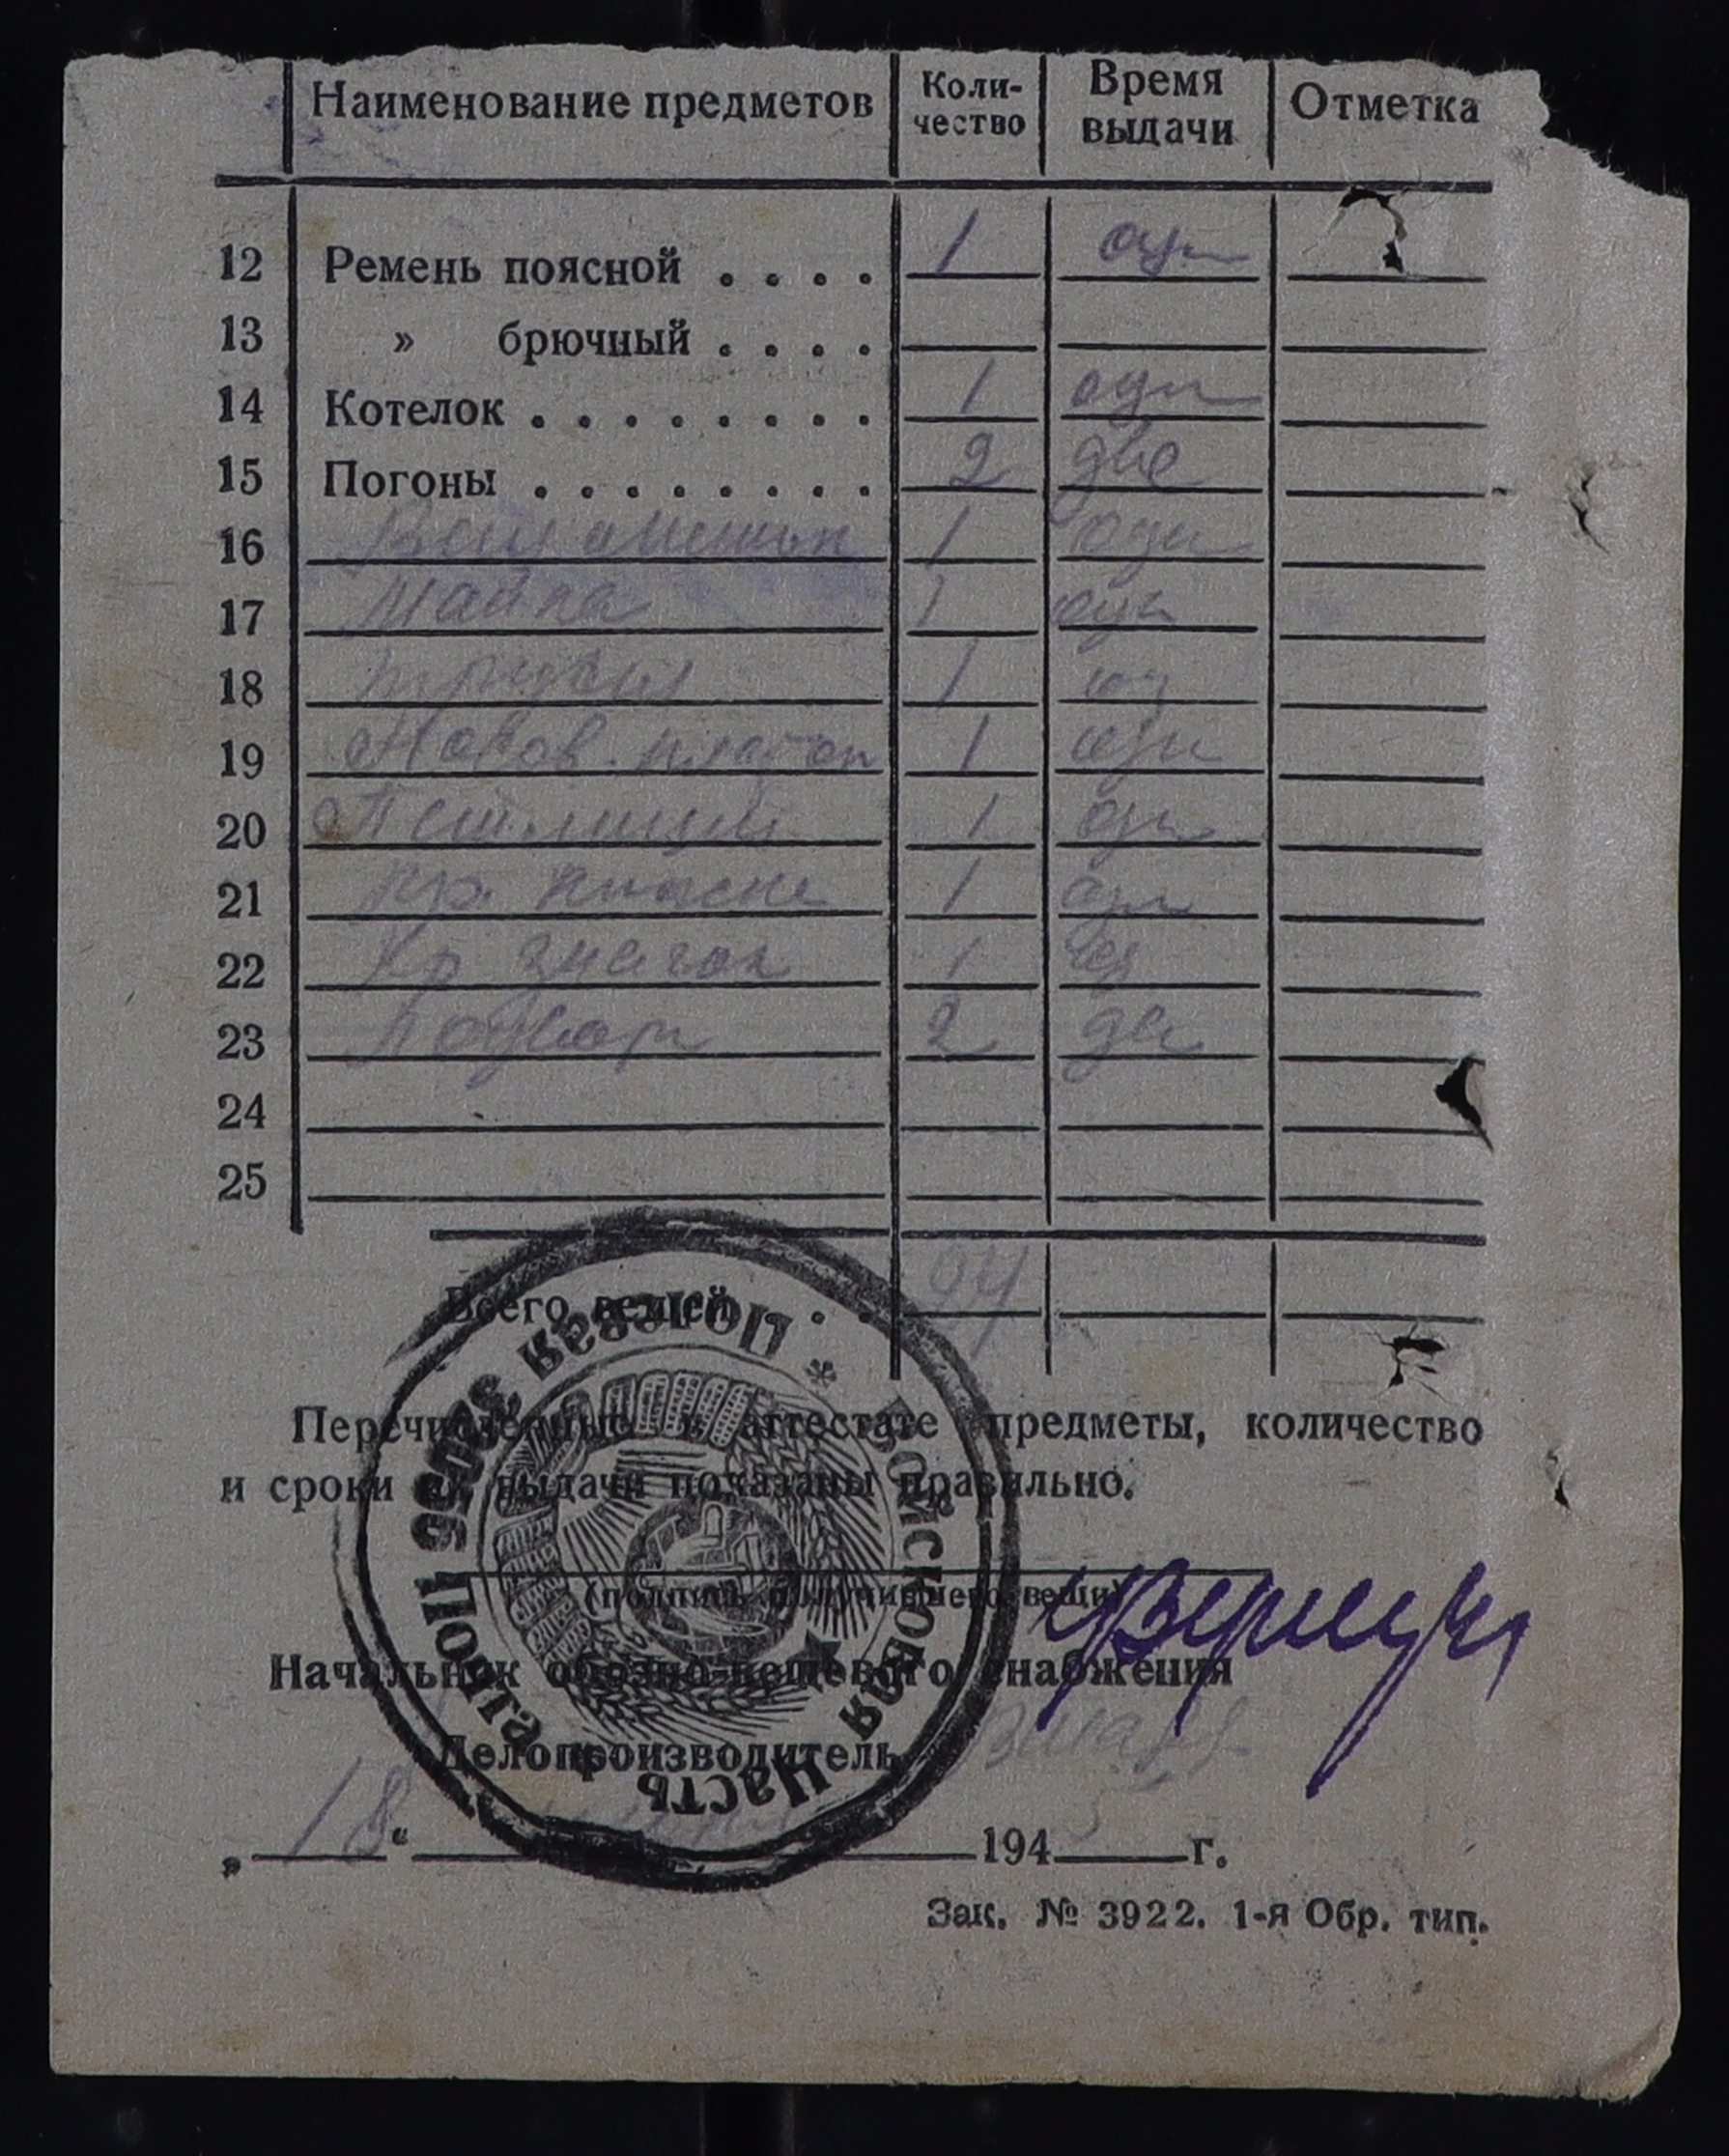 Наименование предметов Коли- чество Время выдачи Отметка
12 Ремень поясной . . . . 1 один
13 » брючный . . . .
14 Котелок . . . . . . . . 1 один
15 Погоны . . . . . . . . 2 две
16 Вещ мешок 1 один
17 Майка 1 один
18 трусы 1 од
19 Носов. платок 1 один
20 Петлицы 1 один
21 Кр. книжка 1 один
22 Кр значок 1 од
23 Подвор 2 две
24
25
Всего вещей . .
Перечисленные в аттестате предметы, количество
и сроки их выдачи показаны правильно.
(подпись получившего вещи)
Начальник обозно-вещевого снабжения
Делопроизводитель
„ 18 “ 194 5 г.
Зак. № 3922. 1-я Обр. тип.
Полевая почта * Войсковая часть